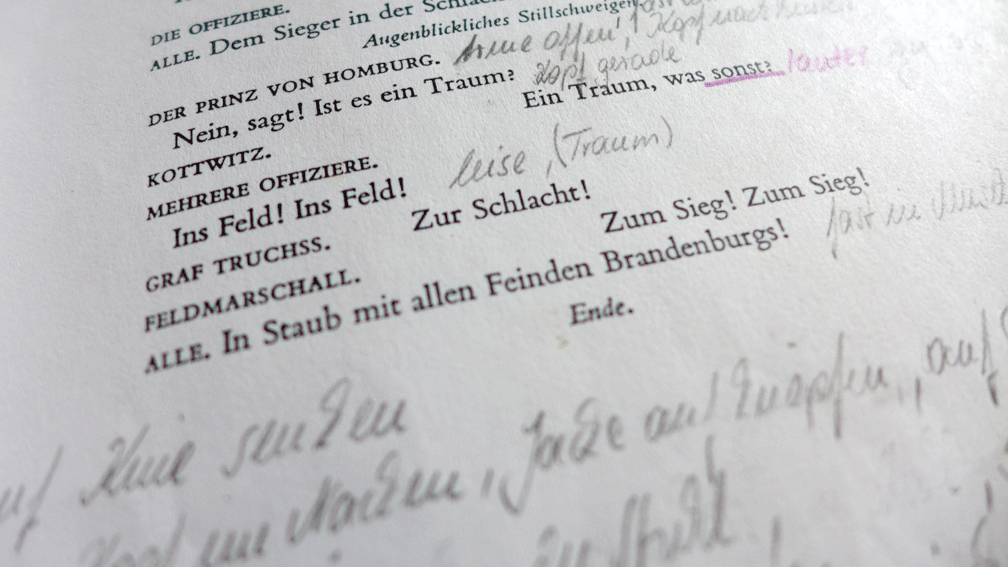 DIE OFFIZIERE.
ALLE. Dem Sieger in der
Augenblickliches Stillschweigen
DER PRINZ VON HOMBURG. Arme offen, Kopf nach
Nein, sagt! Ist es ein Traum? Kopf gerade
KOTTWITZ. Ein Traum, was sonst? lauter
MEHRERE OFFIZIERE. leise, (Traum)
Ins Feld! Ins Feld!
GRAF TRUCHSS. Zur Schlacht!
FELDMARSCHALL. Zum Sieg! Zum Sieg!
ALLE. In Staub mit allen Feinden Brandenburgs! fast im
Ende.
auf Knie senken
Kopf im Nacken, Jacke aufknöpfen, auf